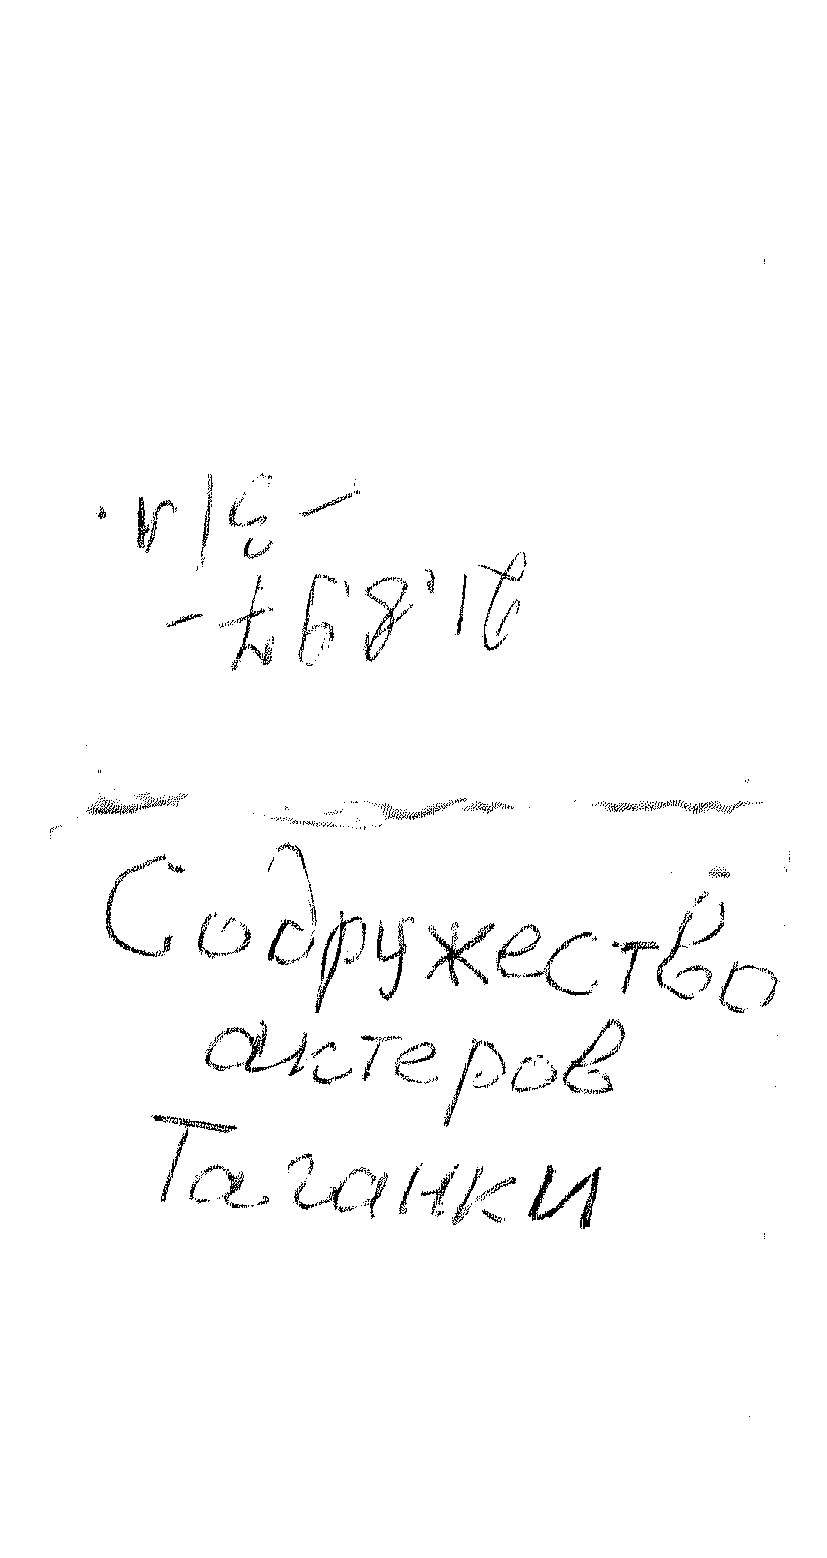 21.8.97-
Содружество
актеров
Таганки